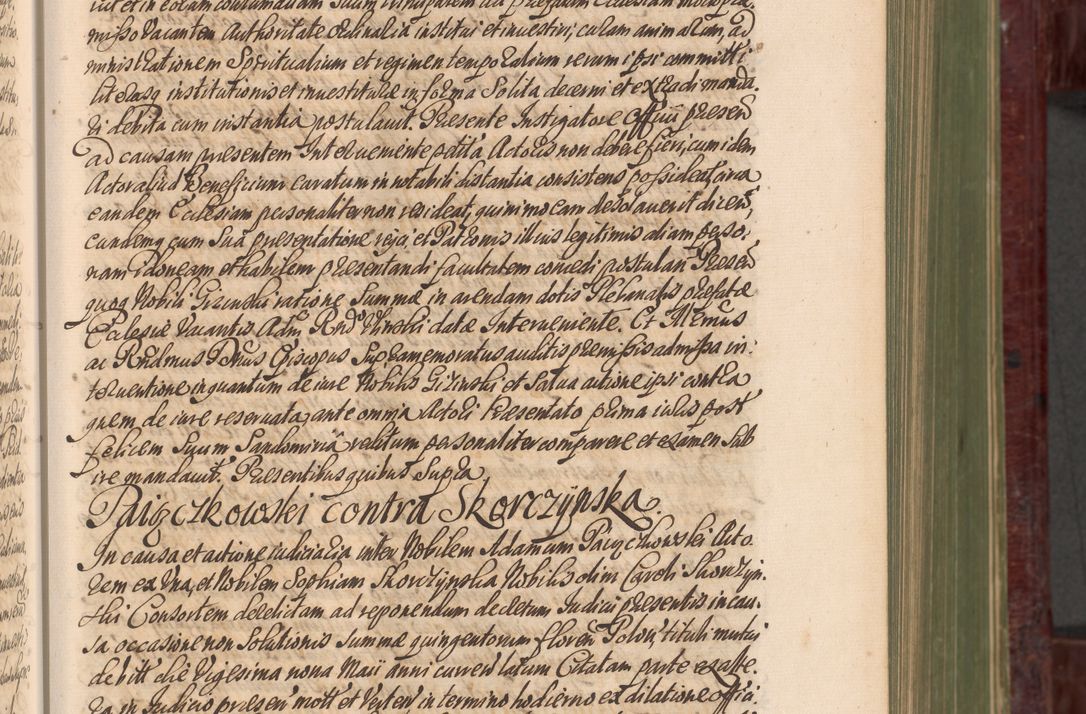 misso Vacantem Authoritate Ordinaria institui et investiri, curam animarum, ad
ministrationem Spiritualium et regimen temporalium rerum ipsi committi
literasq institutionis et investituræ in forma Solita decerni et extradi manda.
ri debita cum instantia postulavit. Præsente Instigatore Officii præsen
ad causam præsentem Interveniente petita Actoris non debere fieri, cum idem
Actor aliud Beneficium curatum in notabili distantia consistens possideat, circa
eandem Ecclesiam personaliter non resideat, quinimo eam desolaverit dicen,
eandemq cum Sua præsentatione rejici et Patronis illius legitimis aliam perso.
nam idoneam et habilem præsentandi facultatem concedi postulan Præsen
quoq Nobili Gizinski ratione Summæ in arendam dotis Plebanalis præfatæ
Ecclesiæ Vacantis Adm Rndo Ulinski datæ Interveniente. Et Illmus
ac Rndmus Dnus Episcopus Supramemoratus auditis præmissis admissa in:
terventione inquantum de iure Nobilis Gizinski et Salva actione ipsi contra
quem de iure reservata, ante omnia Actori Præsentato prima iuris post
felicem Suum Sandomiria reditum personaliter comparere et examen Sub
ire mandavit. Præsentibus quibus Supra
Paiączkowski contra Skorczÿnska.
In causa et actione iudiciaria inter Nobilem Adamum Paiączkowski Acto
rem ex Una, et Nobilem Sophiam Skorczÿnska Nobilis olim Caroli Skorczÿn.
ski Consortem derelictam ad reponendum decretum Iudicii præsentis in cau.
sa occasione non Solutionis Summæ quingentorum floren Polon, tituli mutui
debitt die Vigesima nona Maii anni curren latum Citatam parte ex alte.
ra in Iudicio præsen mott et Verten in termino hodierno ex dilatione Offici